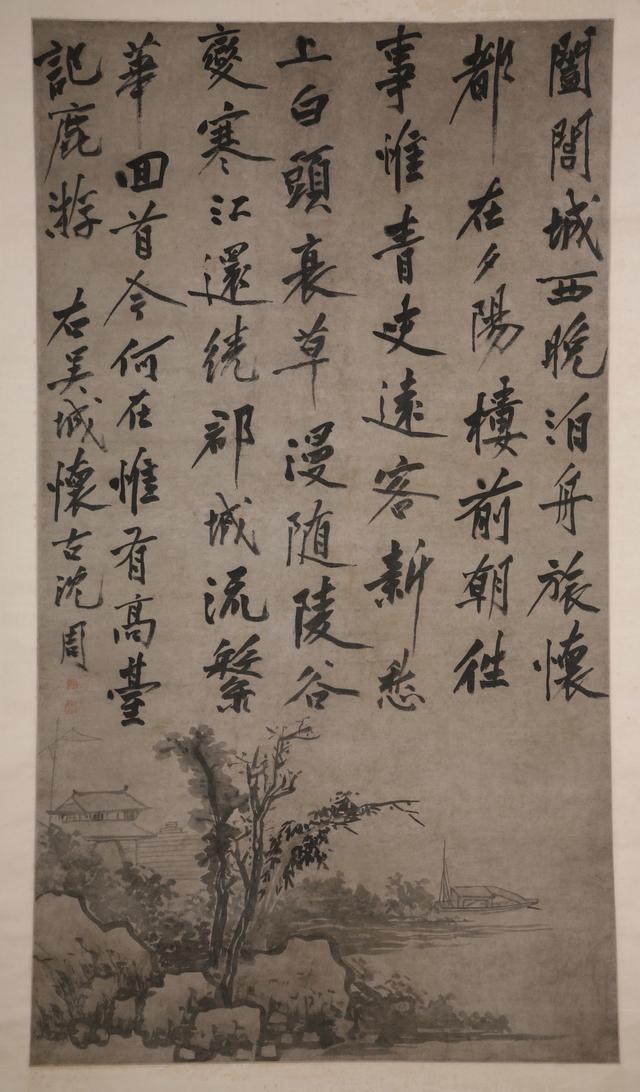 闔閭城西晚泊舟旅懷
都在夕陽樓前朝徃
事惟青史遠客新愁
上白頭衰草漫随陵谷
變寒江還繞郡城流繁
華回首今何在惟有高臺
記鹿游 右吴城懷古沈周